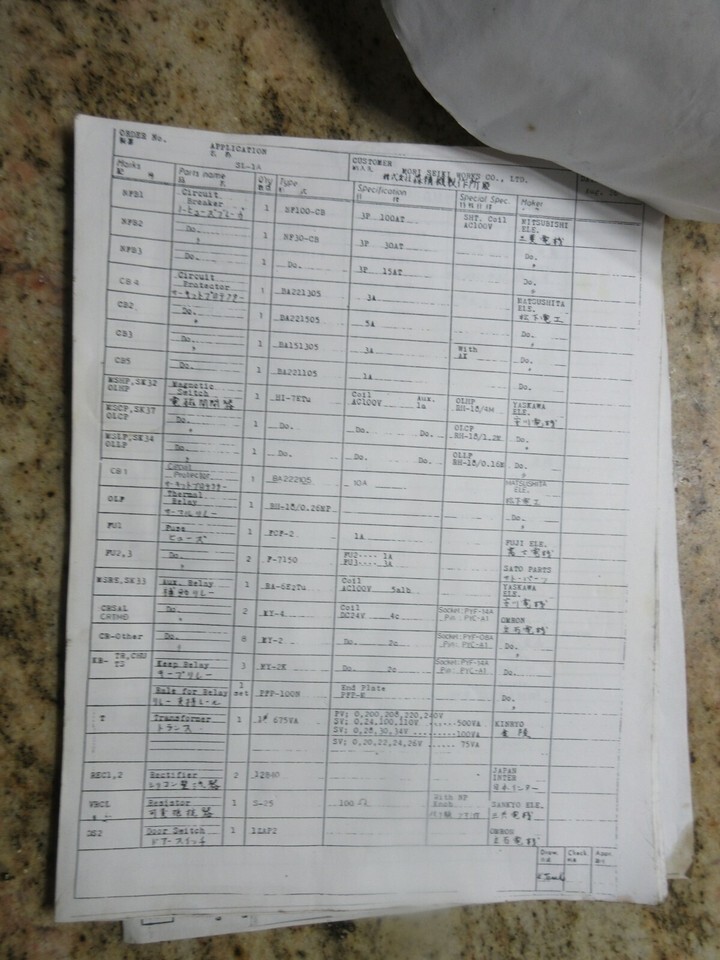 ORDER No.
APPLICATION
SL-1A
CUSTOMER
MORI SEIKI WORKS CO., LTD.
株式会社森精機製作所殿
Marks
Parts name
Qty
Type
Specification
Special Spec.
Maker
NFB1
Circuit
Breaker
1
NF100-CB
3P 100AT
SHT. Coil
AC100V
MITSUBISHI
ELE.
三菱電機
NFB2
Do.
1
NF30-CB
3P 30AT
Do.
NFB3
Do.
1
Do.
3P 15AT
Do.
CB4
Circuit
Protector
サーキットプロテクター
1
BA221305
3A
MATSUSHITA
ELE.
松下電工
CB2
Do.
1
BA221505
5A
Do.
CB3
Do.
1
BA151305
3A
With
AX
Do.
CB5
Do.
1
BA221105
1A
Do.
MSHP,SK32
OLHP
Magnetic
Switch
電磁開閉器
1
HI-7E2U
Coil Aux.
AC100V 1a
OLHP
RH-18/4M
YASKAWA
ELE.
安川電機
MSCP,SK37
OLCP
Do.
1
Do.
Do. Do.
OLCP
RH-18/1.2M
Do.
MSLP,SK34
OLLP
Do.
1
Do.
Do. Do.
OLLP
RH-18/0.16M
Do.
CB1
Circuit
Protector
サーキットプロテクター
1
BA222105
10A
MATSUSHITA
ELE.
松下電工
OLP
Thermal
Relay
サーマルリレー
1
RH-18/0.26MP
Do.
FU1
Fuse
ヒューズ
1
FCF-2
1A
FUJI ELE.
富士電機
FU2,3
Do.
2
F-7150
FU2···· 1A
FU3···· 3A
SATO PARTS
サトーパーツ
MSRE,SK33
Aux. Relay
補助リレー
1
Coil
AC100V 5a1b
YASKAWA
ELE.
安川電機
CRSAL
Do.
2
MY-4
Coil
DC24V 4c
Socket:PYF-14A
Pin: PYC-A1
OMRON
立石電機
CR-Other
Do.
8
MY-2
Do. 2c
Socket:PYF-08A
Pin: PYC-A1
Do.
KR-
Keep Relay
キープリレー
3
MY-2K
Do. 2c
Socket:PYF-14A
Pin: PYC-A1
Do.
Rale for Relay
1
set
PFP-100N
End Plate
PFP-M
Do.
T
Transformer
トランス
1
675VA
PV: 0,200,208,220,240V
SV: 0,24,100,110V ······500VA
SV: 0,28,30,34V ·········100VA
SV: 0,20,22,24,26V ······ 75VA
KINRYO
金陵
REC1,2
Rectifier
シリコン整流器
2
12B40
JAPAN
INTER
日本インター
Resistor
可変抵抗器
1
S-25
100 Ω
With NP
Knob
SANKYO ELE.
DS2
Door Switch
ドアースイッチ
1
OMRON
立石電機
Draw.
Check.
Appr.